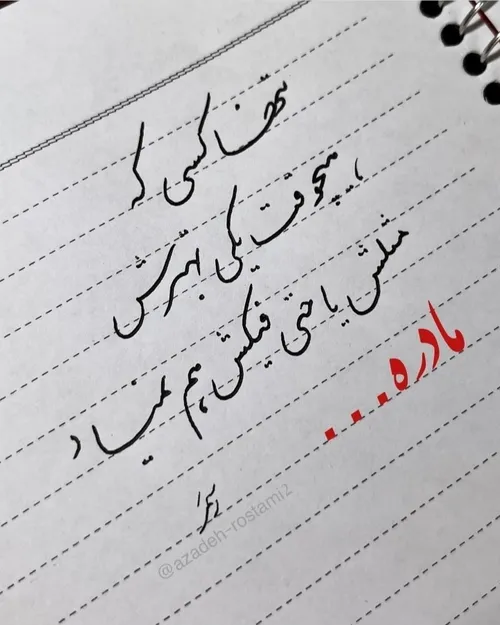 تنها کسی که
هیچوقت یکی بهترش
مثلش یا حتی فیکش هم نمیاد
مادره...
@azadeh-rostami2